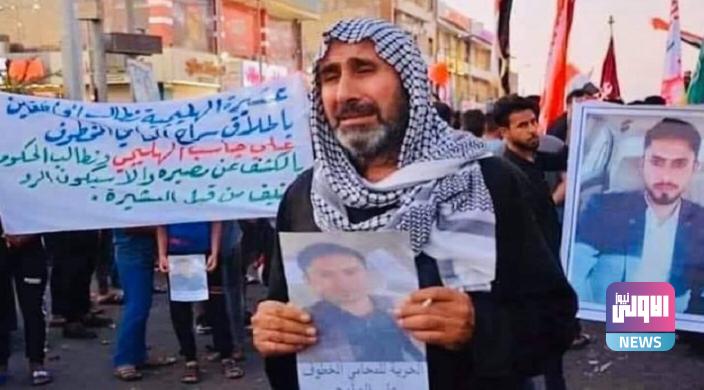 عشيرة الهليجية نطالب الخاطفين
باطلاق سراح المحامي المخطوف
علي جاسب الهليجي ونطالب الحكومة
بالكشف عن مصيره والا سيكون الرد
من قبل العشيرة
الحرية للمحامي المخطوف
الاولى نيوز
NEWS